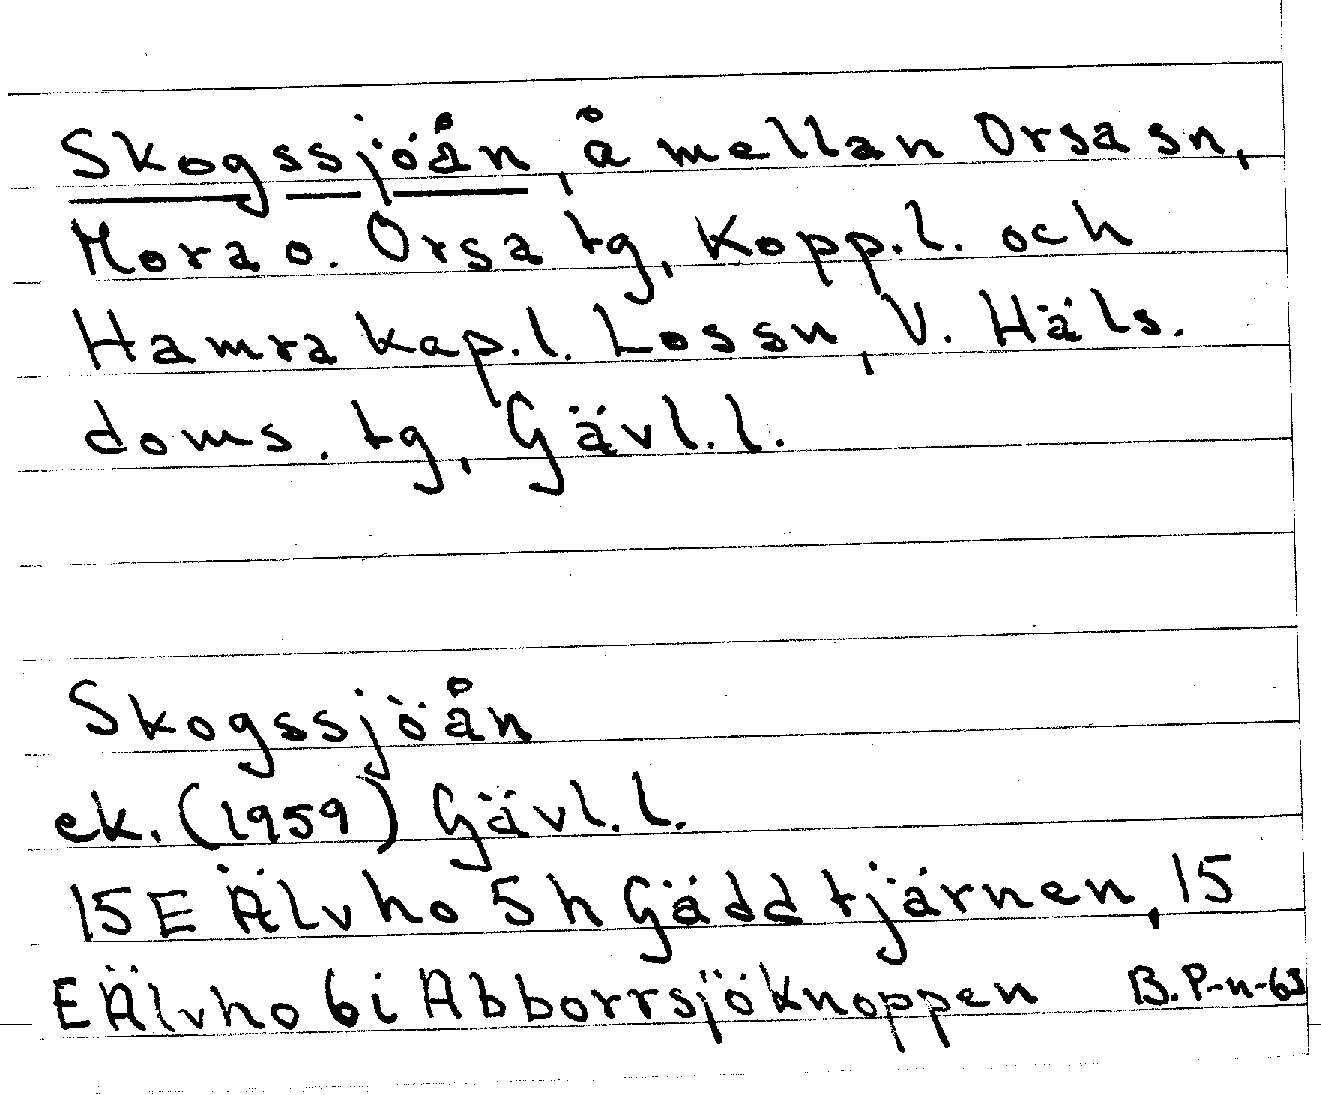 Skogssjöån, å mellan Orsa sn,
Mora o. Orsa tg, Kopp.l. och
Hamra kap.l. Los sn, V. Häls.
doms. tg, Gävl.l.
Skogssjöån
ek. (1959) Gävl.l.
15E Älvho 5h Gäddtjärnen, 15
E Älvho 6i Abborrsjöknoppen B.P-n-63